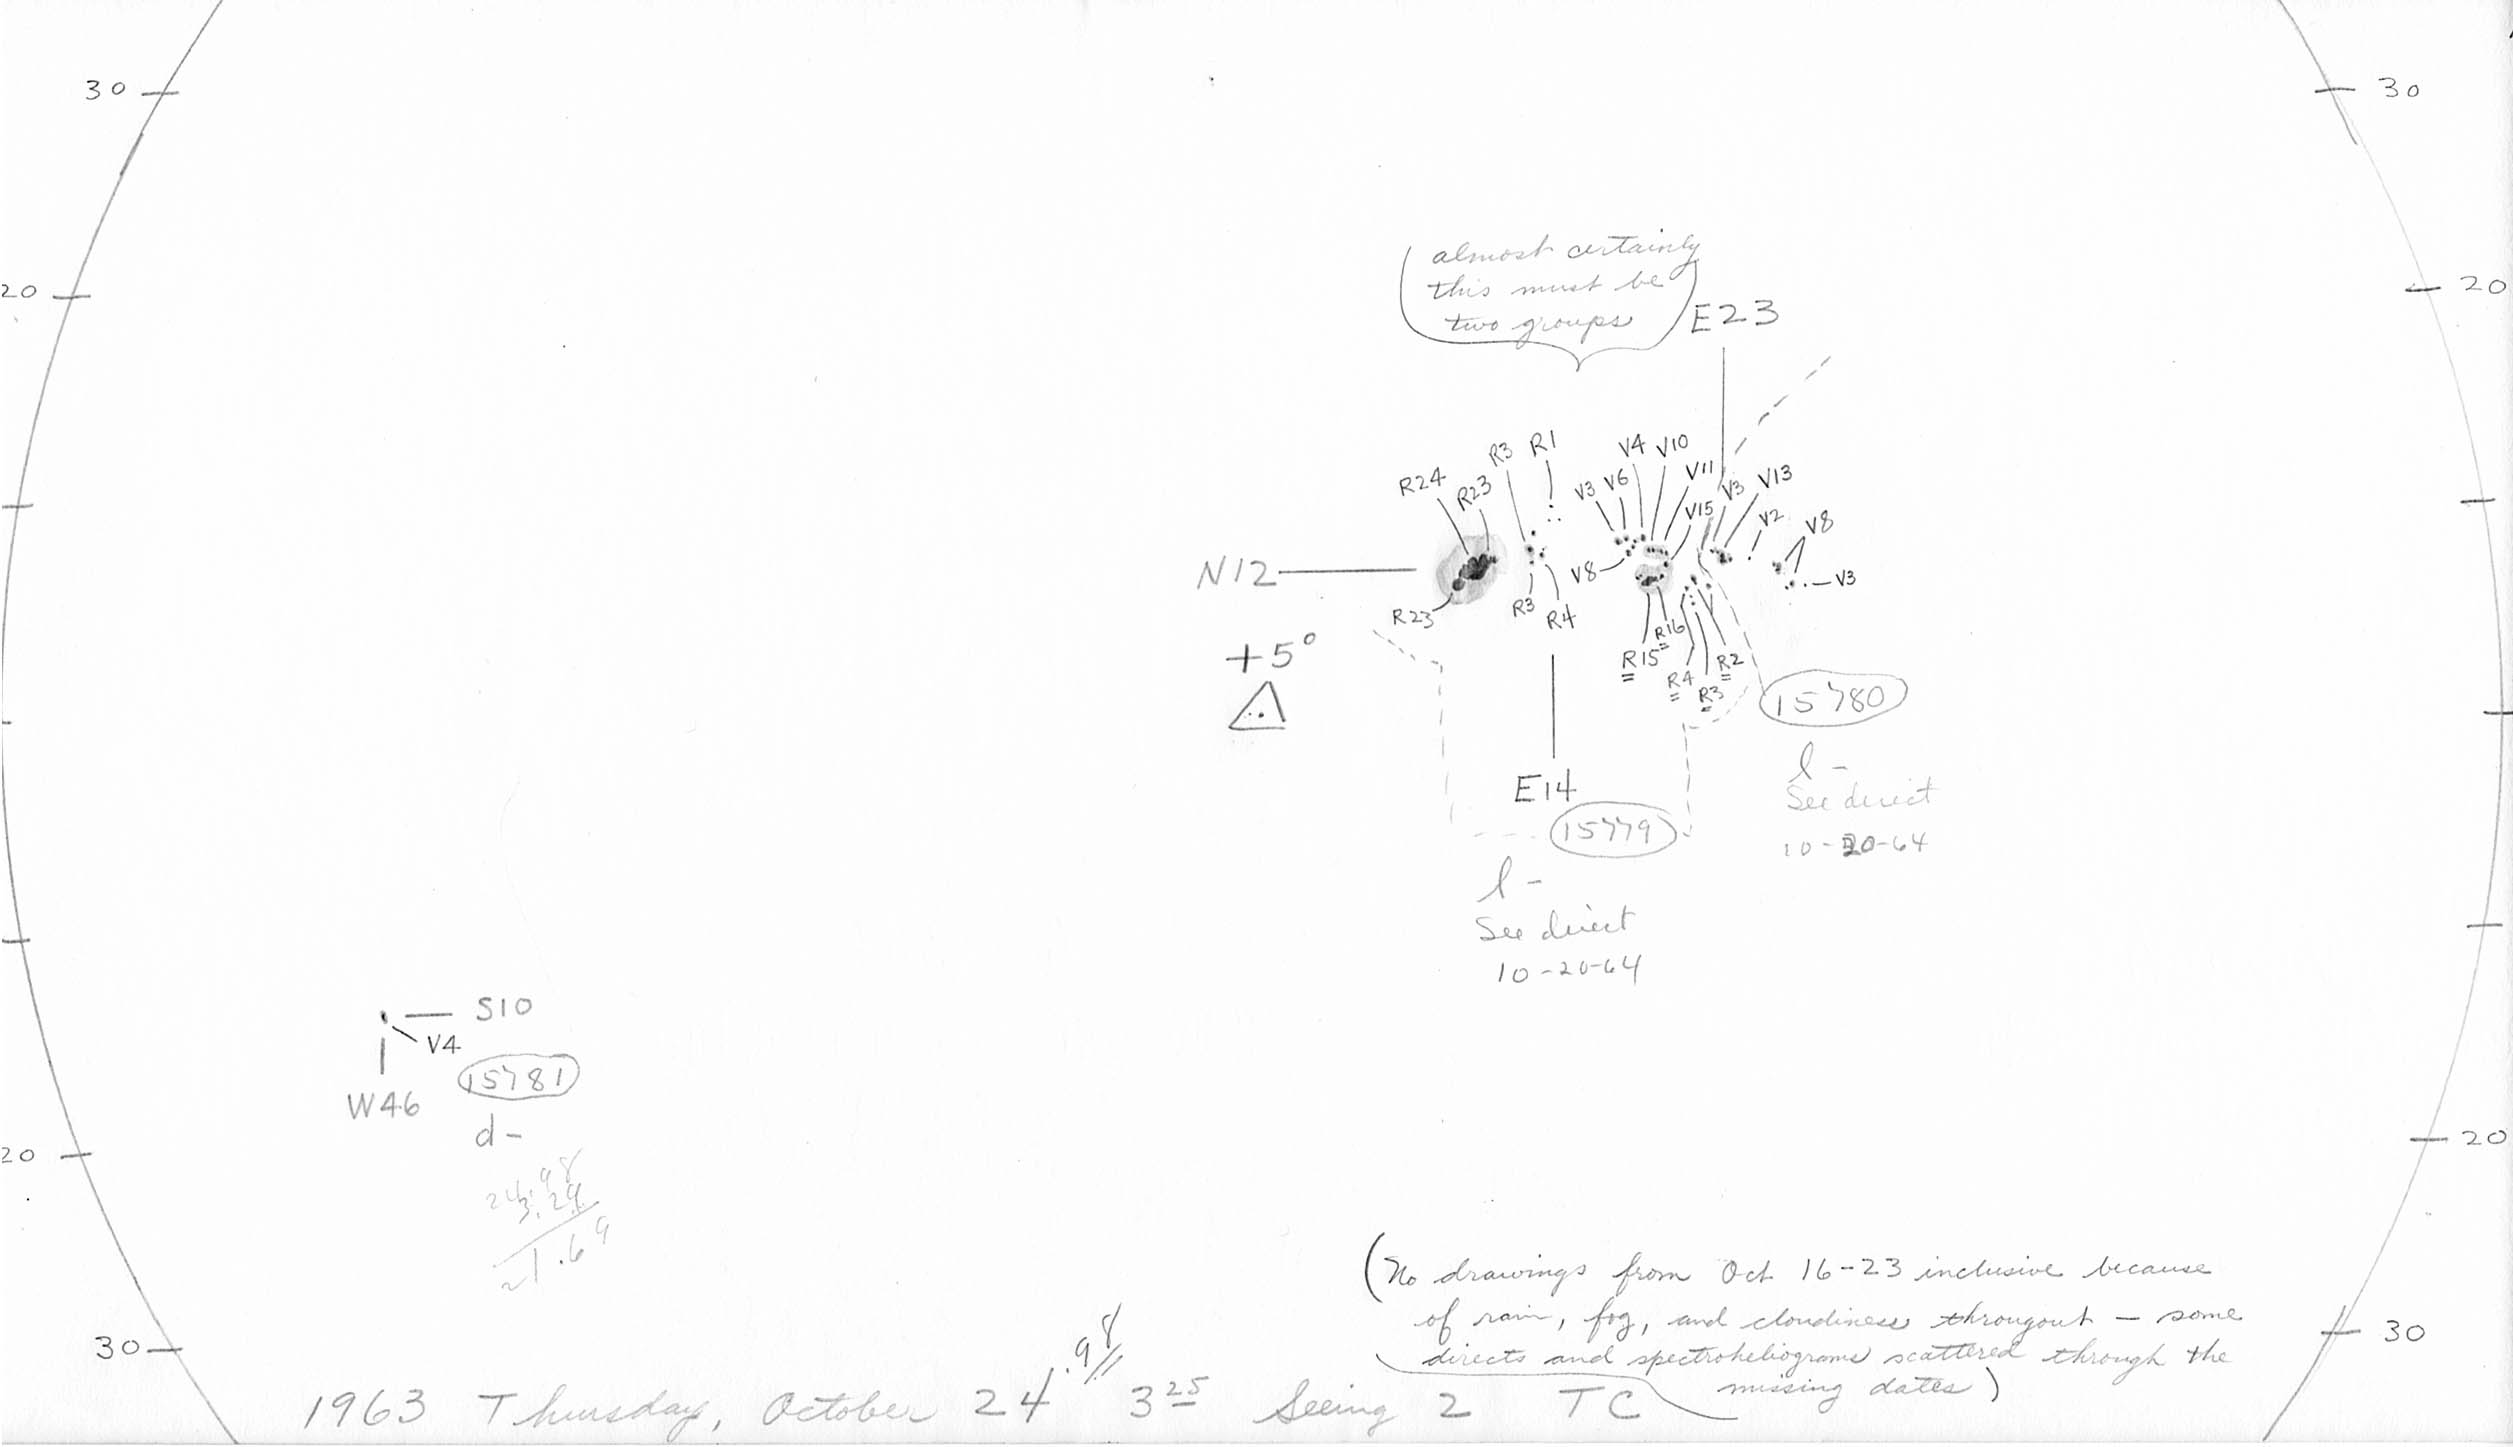 30
30
20
20
almost certainly
this must be
two groups
E23
R24
R23
R3
R1
V3
V6
V4
V10
V11
V15
V3
V13
V2
V8
N12
R23
R3
R4
V8
R15
R16
R4
R3
R2
V3
+5°
15780
l -
See direct
10-20-64
E14
15779
l -
See direct
10-20-64
S10
V4
W46
15781
d -
24.98
3.29
21.69
20
20
30
30
(No drawings from Oct 16-23 inclusive because
of rain, fog, and cloudiness througout - some
directs and spectroheliograms scattered through the
missing dates)
1963 Thursday, October 24.98 3 25 Seeing 2 TC